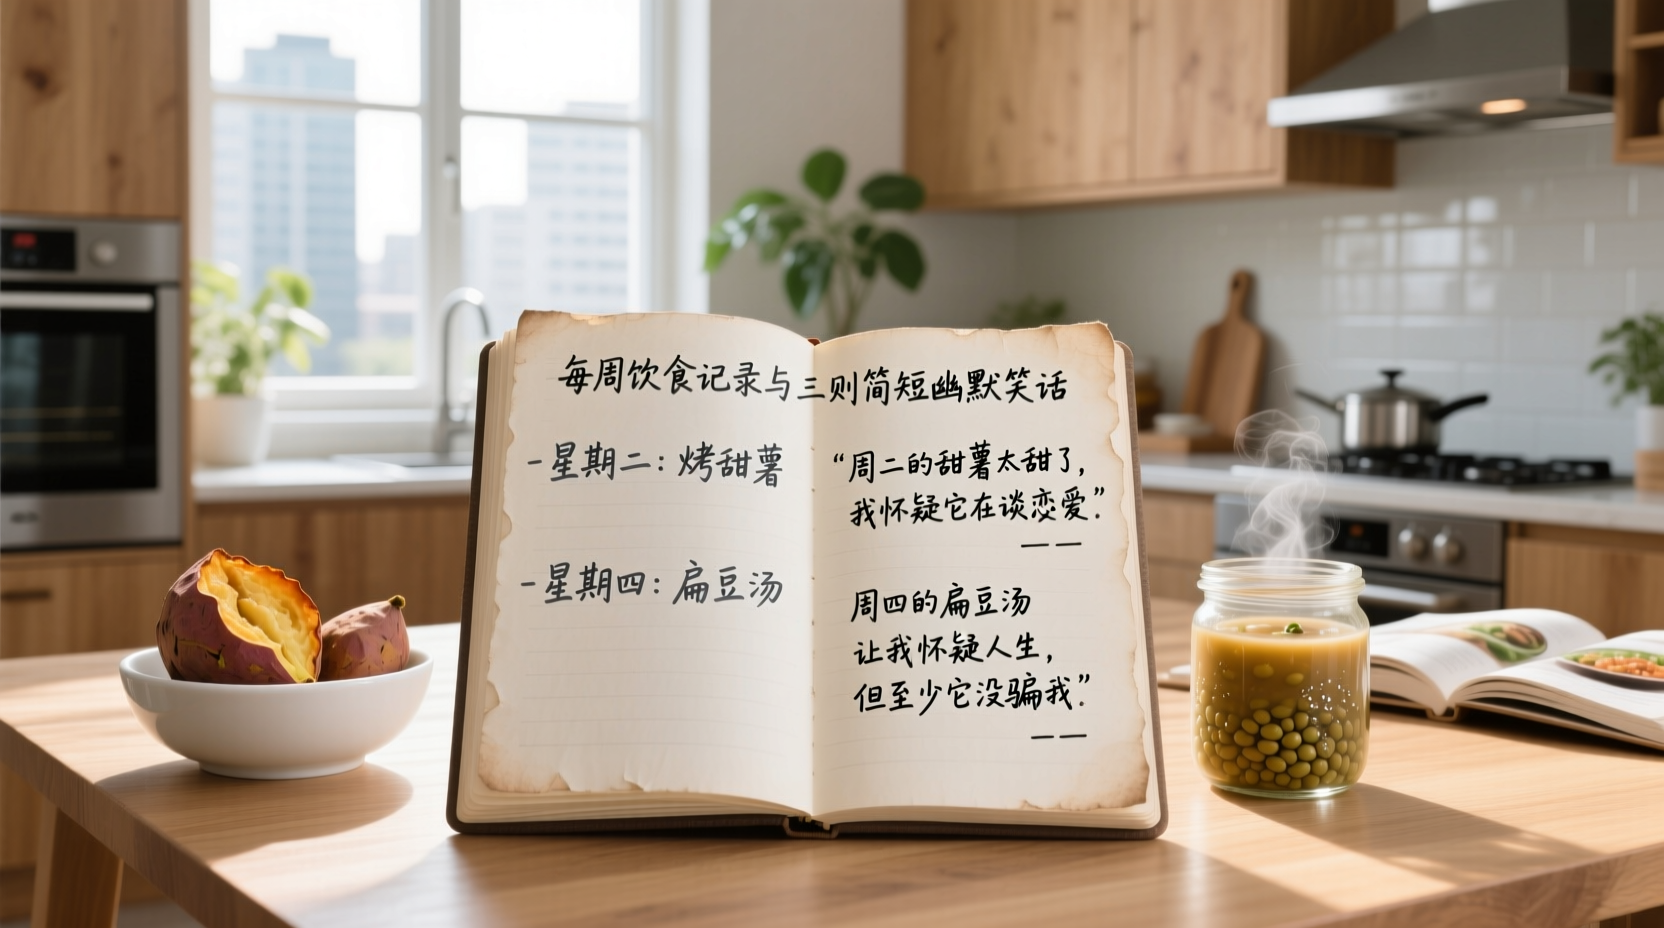 每周饮食记录与三则简短幽默笑话
-星期二：烤甜薯
-星期四：扁豆汤
“周二的甜薯太甜了，
我怀疑它在谈恋爱”.
——
周四的扁豆汤
让我怀疑人生，
但至少它没骗我”.
——